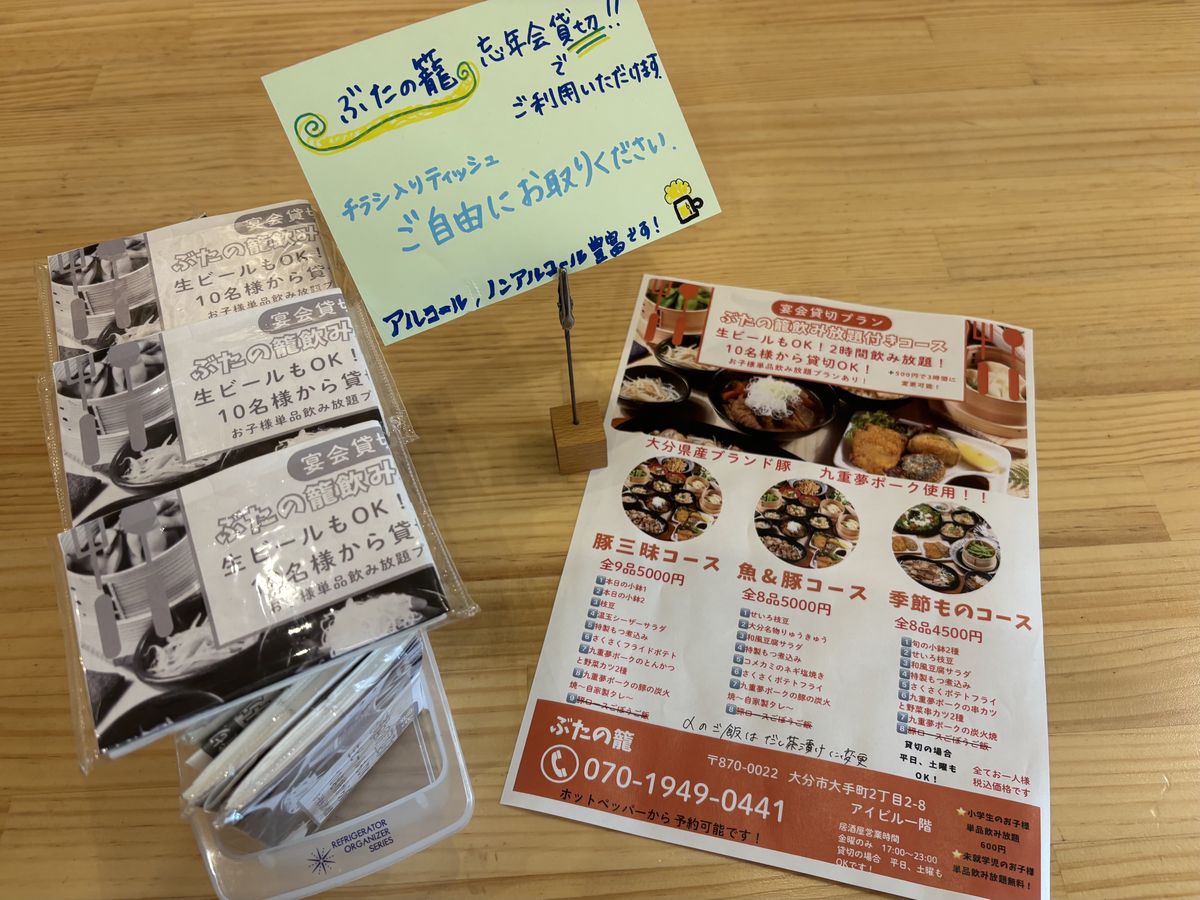 ぶたの籠
忘年会貸切!!
で
ご利用いただけます
チラシ入りティッシュ
ご自由にお取りください.
アルコール,ノンアルコール豊富です!
宴会貸切
ぶたの籠飲み
生ビールもOK!
10名様から貸
お子様単品飲み放題
宴会貸切
ぶたの籠飲み
生ビールもOK!
10名様から貸
お子様単品飲み放題プ
宴会貸切
ぶたの籠飲み
生ビールもOK!
10名様から貸
お子様単品飲み放題プ
REFRIGERATOR
ORGANIZER
SERIES
宴会貸切プラン
ぶたの籠飲み放題付きコース
生ビールもOK!2時間飲み放題!
10名様から貸切OK!
+500円で3時間に
変更可能!
お子様単品飲み放題プランあり!
大分県産ブランド豚 九重夢ポーク使用!!
豚三昧コース
全9品5000円
1本日の小鉢1
2本日の小鉢2
3枝豆
4温玉シーザーサラダ
5特製もつ煮込み
6さくさくフライドポテト
7九重夢ポークのとんかつ
と野菜カツ2種
8九重夢ポークの豚の炭火
焼~自家製タレ~
9豚ロースごぼうご飯
魚&豚コース
全8品5000円
1せいろ枝豆
2大分名物りゅうきゅう
3和風豆腐サラダ
4特製もつ煮込み
5コメカミのネギ塩焼き
6さくさくポテトフライ
7九重夢ポークの豚の炭火
焼~自家製タレ~
8豚ロースごぼうご飯
季節ものコース
全8品4500円
1旬の小鉢2種
2せいろ枝豆
3和風豆腐サラダ
4特製もつ煮込み
5さくさくポテトフライ
6九重夢ポークの串カツ
と野菜串カツ2種
7九重夢ポークの炭火焼
8豚ロースごぼうご飯
のご飯はだし茶漬けに変更
貸切の場合
平日、土曜も
OK!
全てお一人様
税込価格です
ぶたの籠
070-1949-0441
ホットペッパーから予約可能です!
〒870-0022 大分市大手町2丁目2-8
アイビル一階
居酒屋営業時間
金曜のみ 17:00~23:00
貸切の場合 平日、土曜も
OKです!
小学生のお子様
単品飲み放題
600円
未就学児のお子様
単品飲み放題無料!